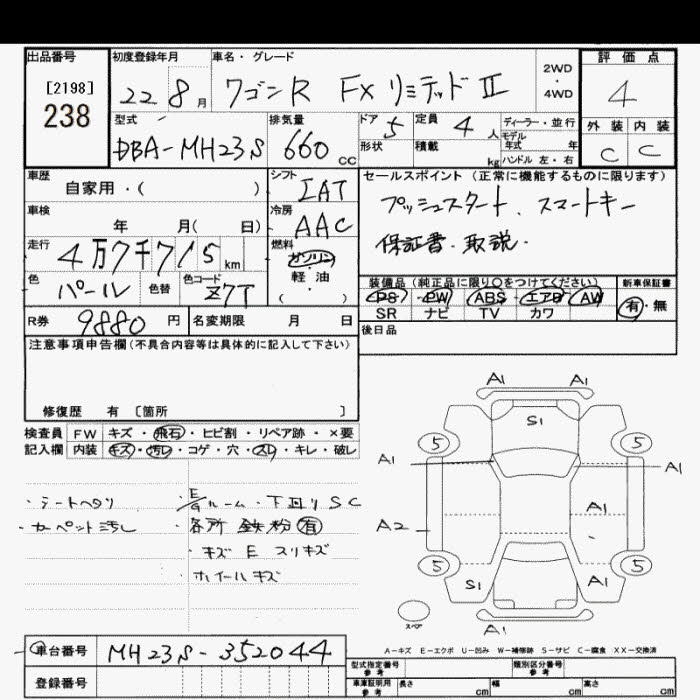 出品番号
[2198]
238
初度登録年月
22 8月
車名・グレード
ワゴンR FXリミテッドⅡ
2WD
・
4WD
評価点
4
外装 内装
C C
型式
DBA-MH23S
排気量
660 CC
ドア 5
形状
定員 4 人
積載 kg
ディーラー・並行
モデル
年式 年
ハンドル 左・右
車歴
自家用・( )
シフト
IAT
車検
年 月( 日)
冷房
AAC
走行
4万7千715km
燃料
ガソリン
・
軽油
( )
色
パール
色替
色コード
Z7T
R券 9880 円
名変期限 月 日
セールスポイント(正常に機能するものに限ります)
プッシュスタート、スマートキー
保証書・取説・
装備品(純正品に限り○をつけてください)
PS・PW・ABS・エアB・AW
SR ナビ TV カワ
新車保証書
有・無
後日品
注意事項申告欄(不具合内容等は具体的に記入して下さい)
修復歴 有 〔箇所 〕
検査員 FW キズ・飛石・ヒビ割・リペア跡・×要
記入欄 内装 キズ・汚レ・コゲ・穴・スレ・キレ・破レ
・シートヘタリ
・カーペット汚し
・E/Gルーム・下廻りSC
・各所鉄粉有
・キズE スリキズ
・ホイールキズ
A1 A1
S1
5 5
A1 A1
A1
A2
5 5
S1 A1
スペア
A1
A-キズ E-エクボ U-凹み W-補修跡 S-サビ C-腐食 XX-交換済
車台番号 MH23S-352044
登録番号
型式指定番号
参考
類別区分番号
参考
車庫証明用
参考
長さ cm 幅 cm 高さ cm